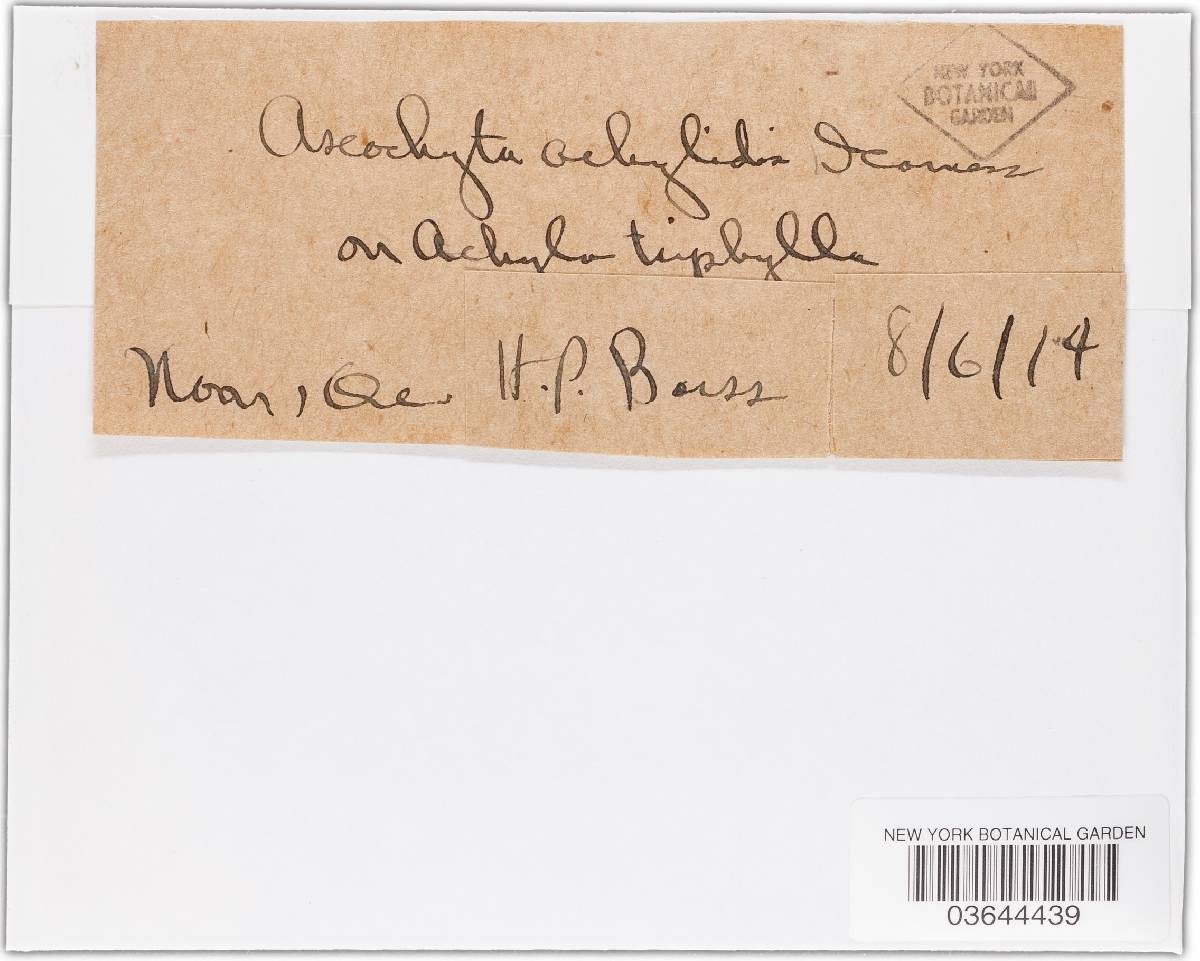 NEW YORK
BOTANICAL
GARDEN
Ascochyta achylidis Dearness
on Achyls triphylla
H.P. Barss
8/6/14
NEW YORK BOTANICAL GARDEN
03644439